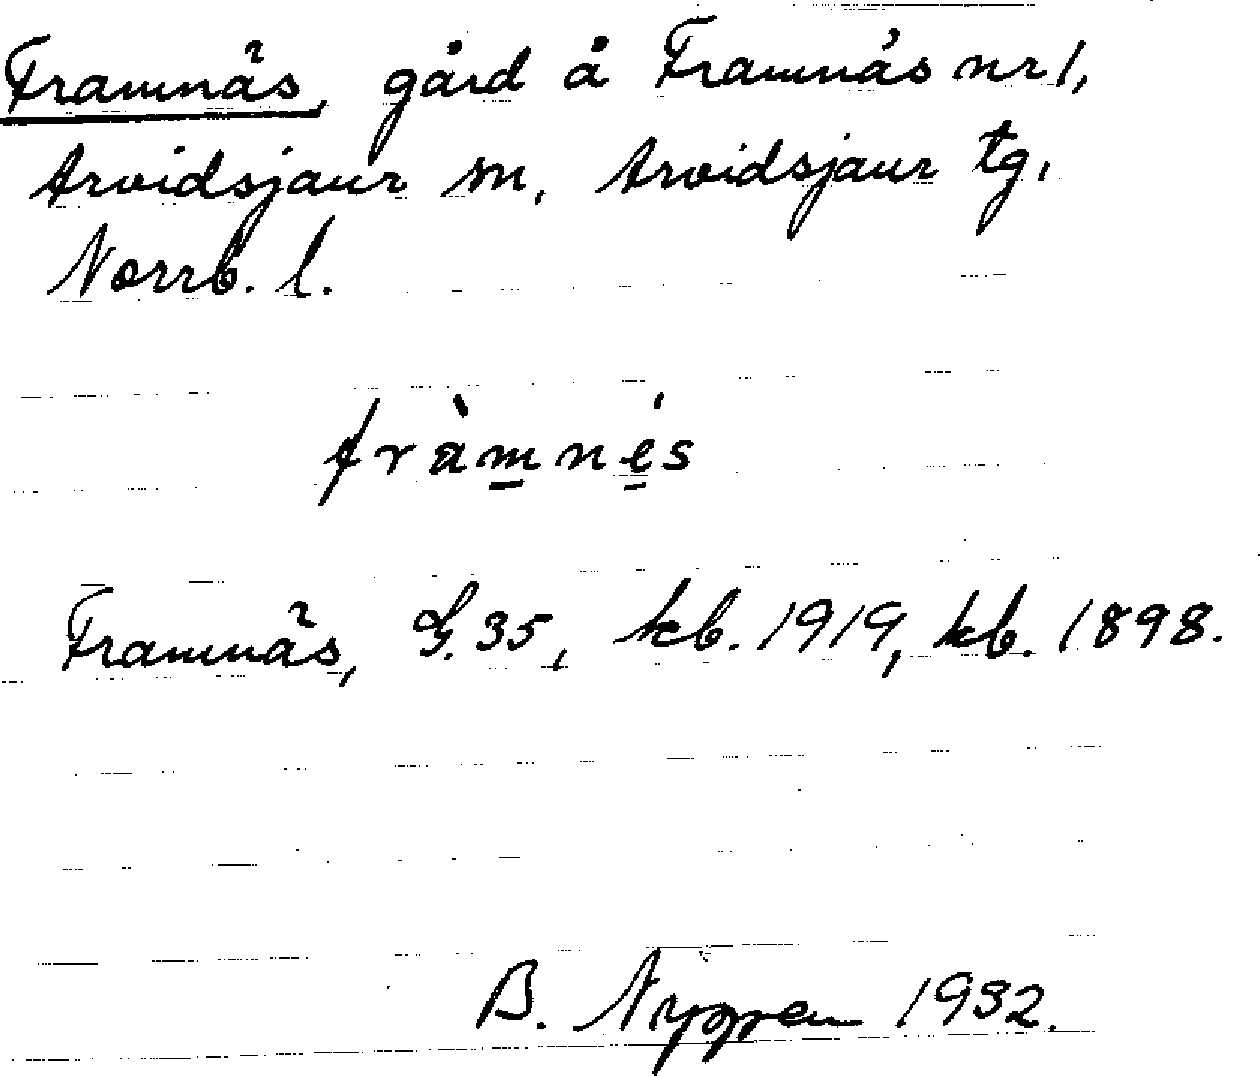 Framnäs, gård å Framnäs nr 1,
Arvidsjaur sn, Arvidsjaur tg,
Norrb. l.
fràmnés
Framnäs, G. 35, kb. 1919, kb. 1898.
B. Nygren 1932.